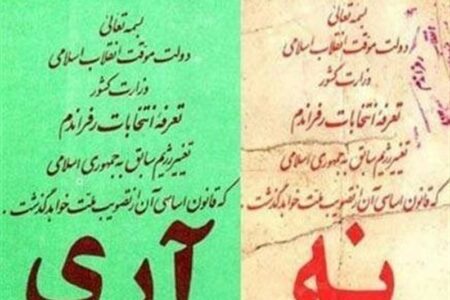 بسمه تعالی
دولت موقت انقلاب اسلامی
وزارت کشور
تعرفه انتخابات رفراندم
تغییر رژیم سابق به جمهوری اسلامی
که قانون اساسی آن از تصویب ملت خواهد گذشت .
آری
بسمه تعالی
دولت موقت انقلاب اسلامی
وزارت کشور
تعرفه انتخابات رفراندم
تغییر رژیم سابق به جمهوری اسلامی
که قانون اساسی آن از تصویب ملت خواهد گذشت .
نه